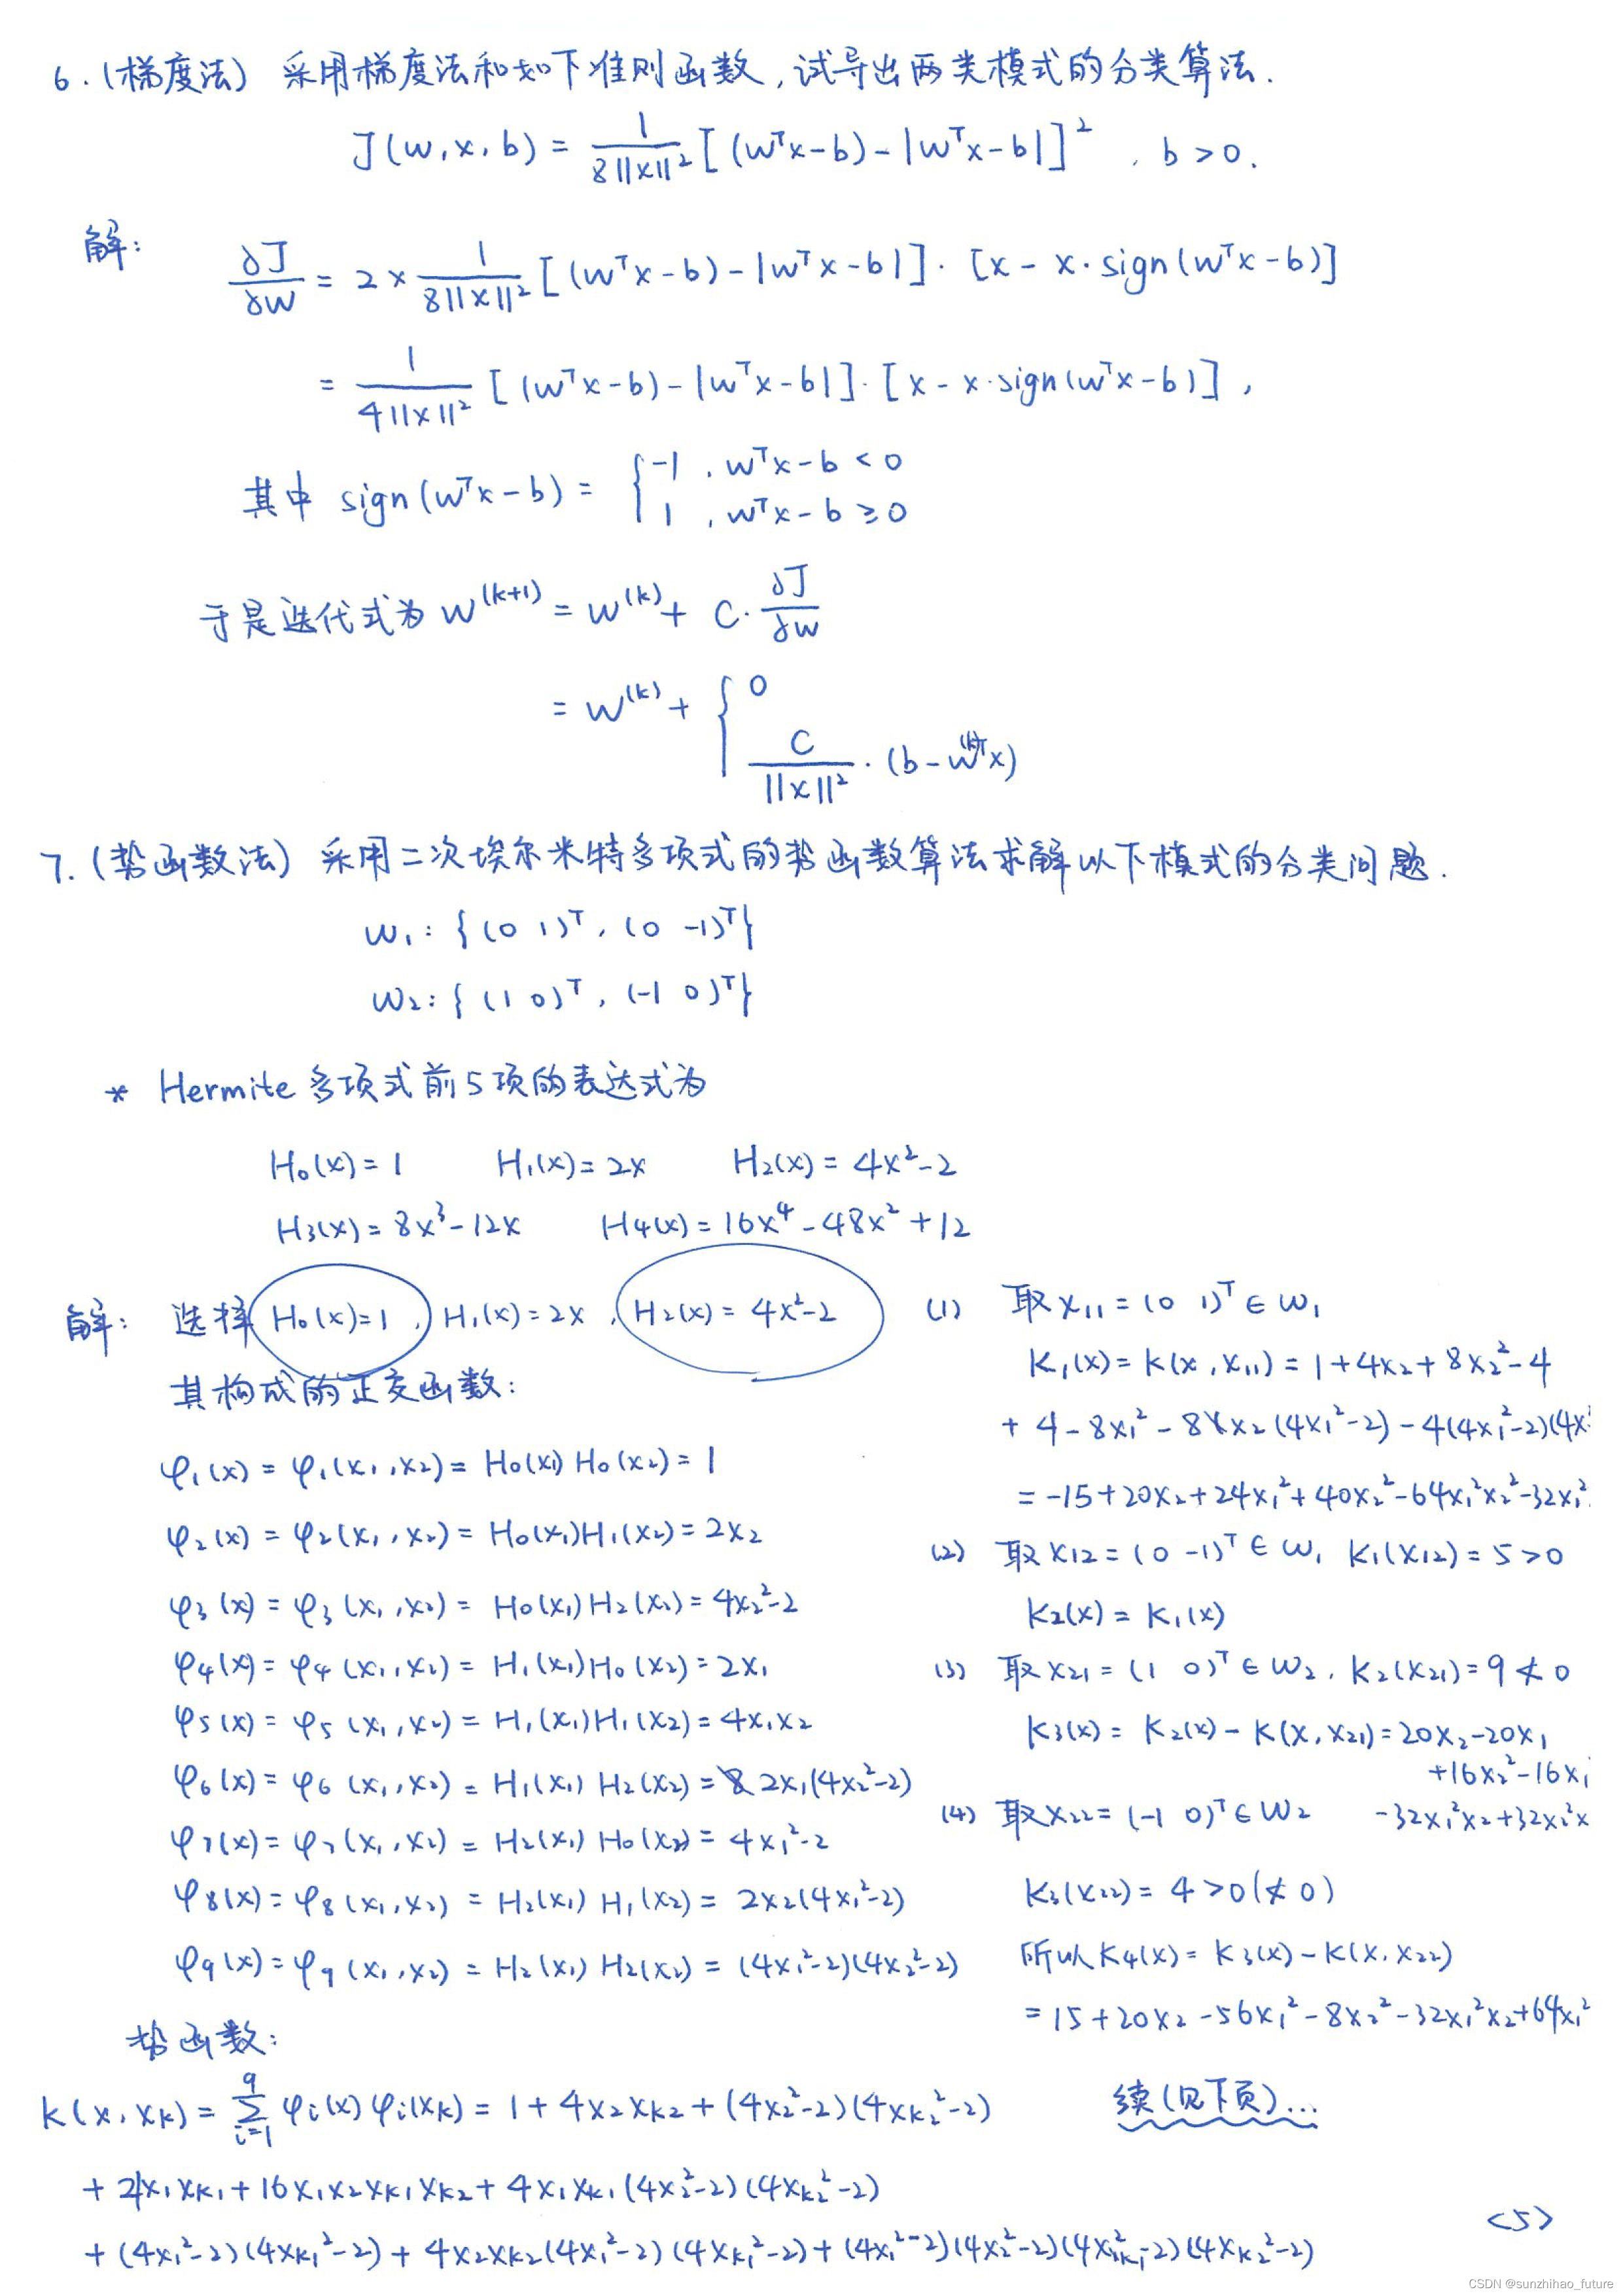 6.(梯度法) 采用梯度法和如下准则函数,试导出两类模式的分类算法.
J(w,x,b) = 1/(8||x||²) [(wᵀx-b)-|wᵀx-b|]² , b>0.
解: ∂J/∂w = 2×1/(8||x||²) [(wᵀx-b)-|wᵀx-b|]·[x-x·sign(wᵀx-b)]
= 1/(4||x||²) [(wᵀx-b)-|wᵀx-b|]·[x-x·sign(wᵀx-b)],
其中 sign(wᵀx-b) = { -1 , wᵀx-b<0
1 , wᵀx-b≥0
于是迭代式为 w^(k+1) = w^(k) + C·∂J/∂w
= w^(k) + { 0
C/||x||² · (b-w^(k)ᵀx)
7.(势函数法) 采用二次埃尔米特多项式的势函数算法求解以下模式的分类问题.
w₁: {(0 1)ᵀ, (0 -1)ᵀ}
w₂: {(1 0)ᵀ, (-1 0)ᵀ}
* Hermite 多项式前5项的表达式为
H₀(x)=1 H₁(x)=2x H₂(x)=4x²-2
H₃(x)=8x³-12x H₄(x)=16x⁴-48x²+12
解: 选择 H₀(x)=1, H₁(x)=2x, H₂(x)=4x²-2
其构成的正交函数:
φ₁(x)=φ₁(x₁,x₂)=H₀(x₁)H₀(x₂)=1
φ₂(x)=φ₂(x₁,x₂)=H₀(x₁)H₁(x₂)=2x₂
φ₃(x)=φ₃(x₁,x₂)=H₀(x₁)H₂(x₂)=4x₂²-2
φ₄(x)=φ₄(x₁,x₂)=H₁(x₁)H₀(x₂)=2x₁
φ₅(x)=φ₅(x₁,x₂)=H₁(x₁)H₁(x₂)=4x₁x₂
φ₆(x)=φ₆(x₁,x₂)=H₁(x₁)H₂(x₂)=2x₁(4x₂²-2)
φ₇(x)=φ₇(x₁,x₂)=H₂(x₁)H₀(x₂)=4x₁²-2
φ₈(x)=φ₈(x₁,x₂)=H₂(x₁)H₁(x₂)=2x₂(4x₁²-2)
φ₉(x)=φ₉(x₁,x₂)=H₂(x₁)H₂(x₂)=(4x₁²-2)(4x₂²-2)
势函数:
K(x,x_k)=Σ_{i=1}^{9} φᵢ(x)φᵢ(x_k)=1+4x₂x_k₂+(4x₂²-2)(4x_k₂²-2)
+4x₁x_k₁+16x₁x₂x_k₁x_k₂+4x₁x_k₁(4x₂²-2)(4x_k₂²-2)
+(4x₁²-2)(4x_k₁²-2)+4x₂x_k₂(4x₁²-2)(4x_k₁²-2)+(4x₁²-2)(4x₂²-2)(4x_k₁²-2)(4x_k₂²-2)
(1) 取 x₁₁=(0 1)ᵀ∈w₁
K₁(x)=K(x,x₁₁)=1+4x₂+8x₂²-4
+4-8x₁²-8x₂(4x₁²-2)-4(4x₁²-2)(4x
=-15+20x₂+24x₁²+40x₂²-64x₁²x₂²-32x₁²
(2) 取 x₁₂=(0 -1)ᵀ∈w₁ K₁(x₁₂)=5>0
K₂(x)=K₁(x)
(3) 取 x₂₁=(1 0)ᵀ∈w₂, K₂(x₂₁)=9≮0
K₃(x)=K₂(x)-K(x,x₂₁)=20x₂-20x₁
+16x₂²-16x₁
-32x₁²x₂+32x₂²x
(4) 取 x₂₂=(-1 0)ᵀ∈w₂
K₃(x₂₂)=4>0(≮0)
所以 K₄(x)=K₃(x)-K(x,x₂₂)
=15+20x₂-56x₁²-8x₂²-32x₁²x₂+64x₁²
续(见下页)...
<5>
CSDN @sunzhihao_future